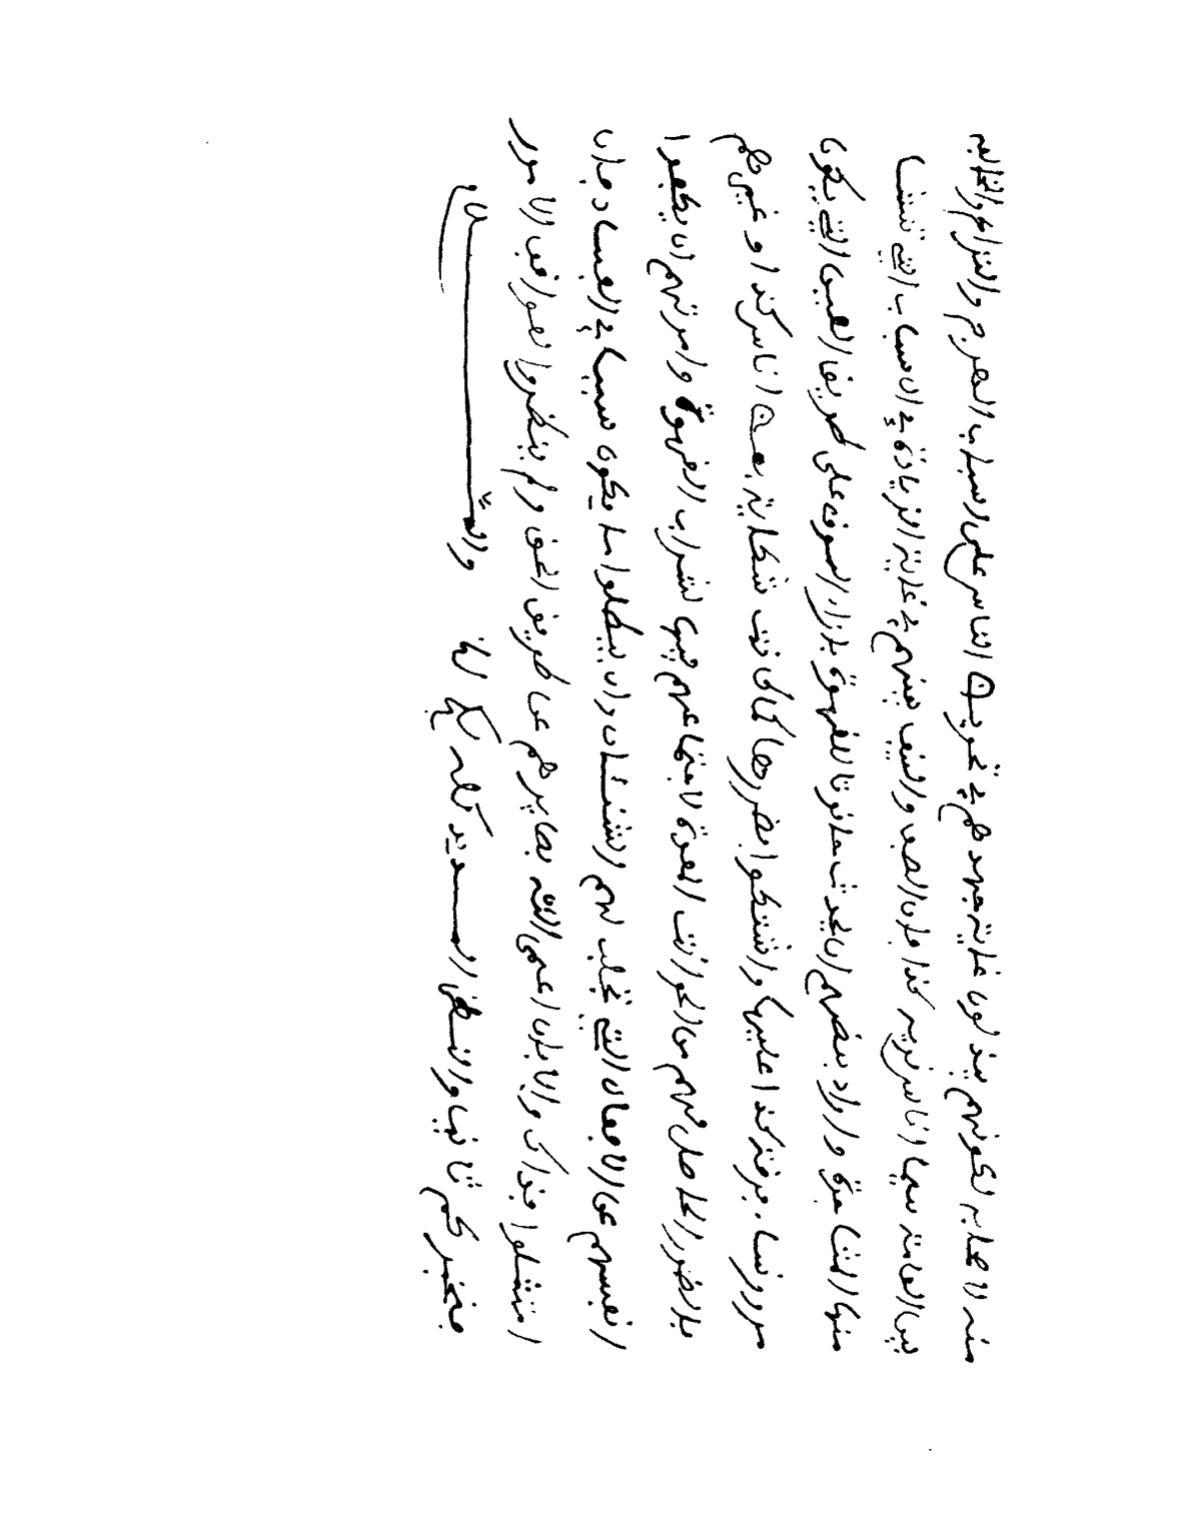 منه الاصابه لكونهم يبذلون غاية جهدهم في تحريض الناس على اسباب الهرج والنزاع والمخالفة
بين العامة سيما اناس قريه كذا فان الصبي والسيف بينهم في غاية الزيادة في الاسباب التي تنشا
منها المشاجرة واراد بعضهم ان يحدث حانوتا للقهوة بازاء العيون على طريق العين التي يكون
مرور نساء فرقة كذا عليها واشتكوا بضررها كما كانت شكاية بعض اناس كذا وغيرهم
بالضرر الحاصل منهم من الحوانت المعدة لاجتماعهم فيها لشراب القهوة وامرتهم ان يكفوا
انفسهم عن الافعال التي تجلب لهم الشنئان وان يبطلوا ما يكون سببا في الفساد فان
امتثلوا فذاك والا بان اعمى الله بصايرهم عن طريق الحق ولم ينظروا لعواقب الامور
فنخبركم ثانيا والنظر السديد كله لكم فيها والسلام